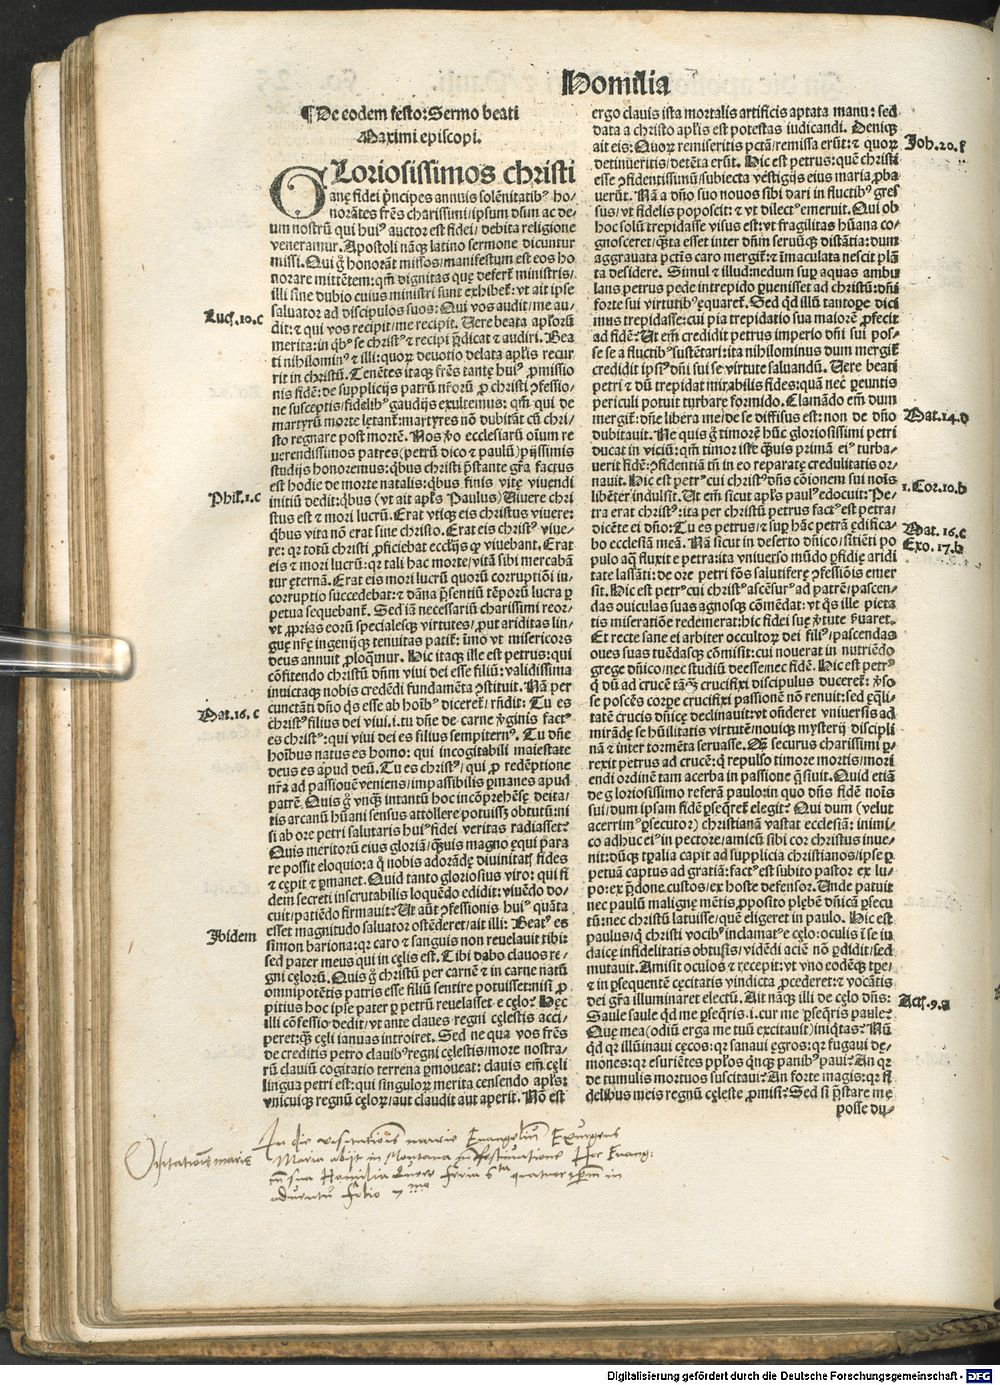 Homilia
¶De eodem festo: Sermo beati
Maximi episcopi.
GLoriosissimos christi
anę fidei p̄ncipes annuis solēnitatibꝰ ho-
norātes frēs charissimi/ipsum dn̄m ac de-
um nostrū qui huiꝰ auctor est fidei/debita religione
veneramur. Apostoli nāqꝫ latino sermone dicuntur
missi. Qui ḡ honorāt missos/manifestum est eos ho
norare mittētem: qm̄ dignitas quę defert̄ ministris/
illi sine dubio cuius ministri sunt exhibet̄: vt ait ipse
saluator ad discipulos suos: Qui vos audit/me au-
dit: ⁊ qui vos recipit/me recipit. Vere beata apl̄orū
Luc̄. 10. c
merita: in qb̄ꝰ se christꝰ ⁊ recipi p̄dicat ⁊ audiri. Bea
ti nihilominꝰ ⁊ illi: quoꝝ deuotio delata apl̄is recur
rit in christū. Tenētes itaqꝫ frēs tantę huiꝰ ꝓmissio
nis fidē: de supplicijs patrū nr̄orū ꝓ christi ꝯfessio-
ne susceptis/fidelibꝰ gaudijs exultemus: qm̄ qui de
martyrū morte lętant̄: martyres nō dubitāt cū chri-
sto regnare post mortē. Nos ꝟo ecclesiarū oīum re
uerendissimos patres (petrū dico ⁊ paulū) pijssimis
studijs honoremus: qb̄us christi p̄stante gr̄a factus
est hodie de morte natalis: qb̄us finis vitę viuendi
initiū dedit: qb̄us (vt ait apl̄s Paulus) Viuere chri
Phil̄. 1. c
stus est ⁊ mori lucrū. Erat vtiqꝫ eis christus viuere:
qb̄us vita nō erat sine christo. Erat eis christꝰ viue-
re: qꝛ totū christi ꝓficiebat eccl̄ijs qꝫ viuebant. Erat
eis ⁊ mori lucrū: qꝛ tali hac morte/vitā sibi mercabā
tur ęternā. Erat eis mori lucrū quorū corruptiōi in-
corruptio succedebat: ⁊ dāna p̄sentiū tēporū lucra ꝑ
petua sequebant̄. Sed iā necessariū charissimi reor/
vt ꝓprias eorū specialesqꝫ virtutes/ꝓut ariditas lin-
guę nr̄ę ingenijqꝫ tenuitas patit̄: īmo vt misericors
deus annuit ꝓloqmur. Hic itaqꝫ ille est petrus: qui
cōfitendo christū dn̄m viui dei esse filiū: validissima
inuictaqꝫ nobis credēdi fundamēta ꝯstituit. Nā per
cunctāti dn̄o qs esse ab hoībꝰ diceret̄/rn̄dit: Tu es
christꝰ filius dei viui. i. tu dn̄e de carne ꝟginis factꝰ
Mat. 16. c
es christꝰ: qui viui dei es filius sempiternꝰ. Tu dn̄e
hoībus natus es homo: qui incogitabili maiestate
deus es apud deū. Tu es christꝰ/qui ꝓ redēptione
nr̄a ad passionē veniens/impassibilis ꝑmanes apud
patrē. Quis ḡ vnqꝫ intantū hoc incōprehēsę deita/
tis arcanū hūani sensus attollere potuiss̄ obtutū: ni
si ab ore petri salutaris huiꝰ fidei veritas radiasset?
Quis meritorū eius gloriā/qꝫuis magno ęqui para
re possit eloquio: a q̄ nobis adorādę diuinitatꝭ fides
⁊ cępit ⁊ ꝑmanet. Quid tanto gloriosius viro: qui fi
dem secreti inscrutabilis loquēdo edidit: viuēdo do-
cuit/patiēdo firmauit? Ut aūt ꝯfessionis huiꝰ quāta
esset magnitudo saluator ostēderet/ait illi: Beatꝰ es
Ibidem
simon bariona: qꝛ caro ⁊ sanguis non reuelauit tibi:
sed pater meus qui in cęlis est. Tibi dabo clauos re-
gni cęlorū. Quis ḡ christū per carnē ⁊ in carne natū
omnipotētis patris esse filiū sentire potuisset: nisi ꝓ
pitius hoc ipse pater ꝑ petrū reuelasset e cęlo? Hęc
illi cōfessio dedit/vt ante claues regni cęlestis acci/
peret: qꝫ cęli ianuas introiret. Sed ne qua vos frēs
de creditis petro clauibꝰ regni cęlestis/more nostra-
rū clauiū cogitatio terrena ꝑmoueat: clauis em̄ cęli
lingua petri est: qui singuloꝝ merita censendo apl̄s:
vnicuiqꝫ regnū cęloꝝ/aut claudit aut aperit. Nō est
ergo clauis ista mortalis artificis aptata manu: sed
data a christo apl̄is est potestas iudicandi. Deniqꝫ
ait eis: Quoꝝ remiseritis pctā/remissa erūt: ⁊ quoꝝ
Joh. 20. f
detinueritis/detēta erūt. Hic est petrus: quē christi
esse ꝯfidentissimū/subiecta vestigijs eius maria ꝓba
uerūt. Nā a dn̄o suo nouos sibi dari in fluctibꝰ gres
sus/vt fidelis poposcit: ⁊ vt dilectꝰ emeruit. Qui ob
hoc solū trepidasse visus est: vt fragilitas hūana co-
gnosceret/qꝫta esset inter dn̄m seruūqꝫ distātia: dum
aggrauata pctīs caro mergit̄: ⁊ īmaculata nescit plā
ta desidere. Simul ⁊ illud: nedum sup aquas ambu
lans petrus pede intrepido ꝑuenisset ad christū: dn̄i
forte sui virtutibꝰ ęquaret̄. Sed qd̄ illū tantope dici
mus trepidasse: cui pia trepidatio sua maiorē ꝓfecit
ad fidē? Ut em̄ credidit petrus imperio dn̄i sui pos-
se se a fluctibꝰ sustētari: ita nihilominus dum mergit̄
credidit ipsiꝰ dn̄i sui se virtute saluandū. Vere beati
petri ⁊ dū trepidat mirabilis fides: quā nec ꝑeuntis
periculi potuit turbare formido. Clamādo em̄ dum
mergit̄: dn̄e libera me/de se diffisus est: non de dn̄o
Mat. 14. d
dubitauit. Ne quis ḡ timorē hūc gloriosissimi petri
ducat in viciū: qm̄ timor iste qꝫuis primā eiꝰ turba-
uerit fidē: ꝯfidentiā tn̄ in eo reparatę credulitatis or-
nauit. Hic est petrꝰ cui christꝰ dn̄s cōionem sui noīs
libēter indulsit. Ut em̄ sicut apl̄s paulꝰ edocuit: Pe-
1. Cor. 10. b
tra erat christꝰ: ita per christū petrus factꝰ est petra/
dicēte ei dn̄o: Tu es petrus/⁊ sup hāc petrā ędifica-
Mat. 16. c
bo ecclesiā meā. Nā sicut in deserto dn̄ico/sitiēti po
Exo. 17. b
pulo aq̄ fluxit e petra: ita vniuerso mūdo ꝑfidię aridi
tate lassāti: de ore petri fōs salutiferę ꝯfessiōis emer
sit. Hic est petrꝰ cui christꝰ ascēsurꝰ ad patrē/pascen-
das ouiculas suas agnosqꝫ cōmēdat: vt qs ille pieta
tis miseratiōe redemerat: hic fidei suę ꝟtute ẜuaret.
Et recte sane ei arbiter occultoꝝ dei filiꝰ/pascendas
oues suas tuēdasqꝫ cōmisit: cui nouerat in nutriēdo
grege dn̄ico/nec studiū deesse/nec fidē. Hic est petrꝰ
q̄ dū ad crucē tāqꝫ crucifixi discipulus duceret̄: ꝟso
se poscēs corꝑe crucifixi passionē nō renuit: sed ęq̄li
tatē crucis dn̄icę declinauit: vt on̄deret vniuersis ad
mirādę se hūilitatis virtutē/nouiqꝫ mysterij discipli
nā ⁊ inter tormēta seruasse. Qꝫ securus charissimi ꝑ-
rexit petrus ad crucē: q̄ repulso timore mortis/mori
endi ordinē tam acerba in passione q̄siuit. Quid etiā
de gloriosissimo referā paulo: in quo dn̄s fidē noīs
sui/dum ipsam fidē ꝑseqret̄ elegit? Qui dum (velut
acerrimꝰ ꝑsecutor) christianā vastat ecclesiā: inimi-
co adhuc eiꝰ in pectore/amicū sibi cor christus inue-
nit: dūqꝫ tꝑalia capit ad supplicia christianos/ipse ꝑ
petuā captus ad gratiā: factꝰ est subito pastor ex lu-
po: ex p̄done. custos/ex hoste defensor. Unde patuit
nec paulū malignę mētis ꝓposito plębē dn̄icā ꝑsecu
tū: nec christū latuisse/quē eligeret in paulo. Hic est
paulus/q̄ christi vocibꝰ inclamatꝰ e cęlo: oculis ī se iu
daicę infidelitatis obtusis/vidēdi aciē nō ꝑdidit/sed
mutauit. Amisit oculos ⁊ recepit: vt vno eodēqꝫ tꝑe/
⁊ in ꝑsequentē cęcitatis vindicta ꝓcederet: ⁊ vocātis
dei gr̄a illuminaret electū. Ait nāqꝫ illi de cęlo dn̄s:
Act̄. 9. a
Saule saule qd̄ me ꝑseqris. i. cur me ꝑseqris paule?
Quę mea (odiū erga me tuū excitauit) iniqtas? Nū
qd̄ qꝛ illūinaui cęcos: qꝛ sanaui ęgros: qꝛ fugaui dę-
mones: qꝛ esuriētes ppl̄os qnqꝫ panibꝰ paui? An qꝛ
de tumulis mortuos suscitaui? An forte magis: qꝛ fi
delibus meis regnū cęleste ꝓmisi? Sed si p̄stare me
posse du-
Visitationis marie
In die visitationis marie Evangeliū Exurgens
Maria abijt in Montana Hoc Evang:
cū sua Homilia Quere feria 6ta quatuor in
adventū folio
Digitalisierung gefördert durch die Deutsche Forschungsgemeinschaft - DFG